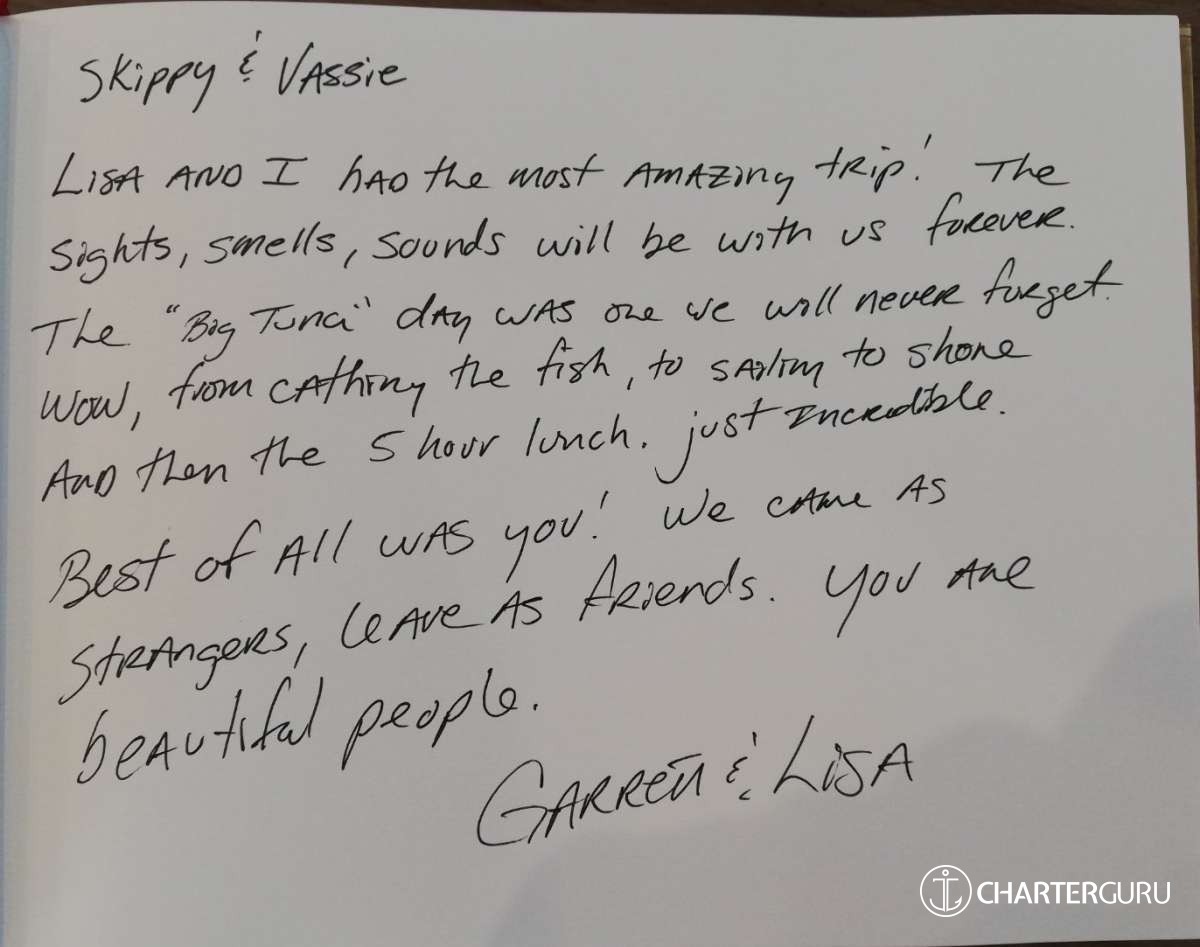 Skippy & Vassie
Lisa and I had the most amazing trip! The
sights, smells, sounds will be with us forever.
The "Big Tuna" day was one we will never forget.
Wow, from cathing the fish, to sailing to shore
and then the 5 hour lunch. just incredible.
Best of all was you! We came as
strangers, leave as friends. You are
beautiful people.
Garrett & Lisa
CHARTERGURU